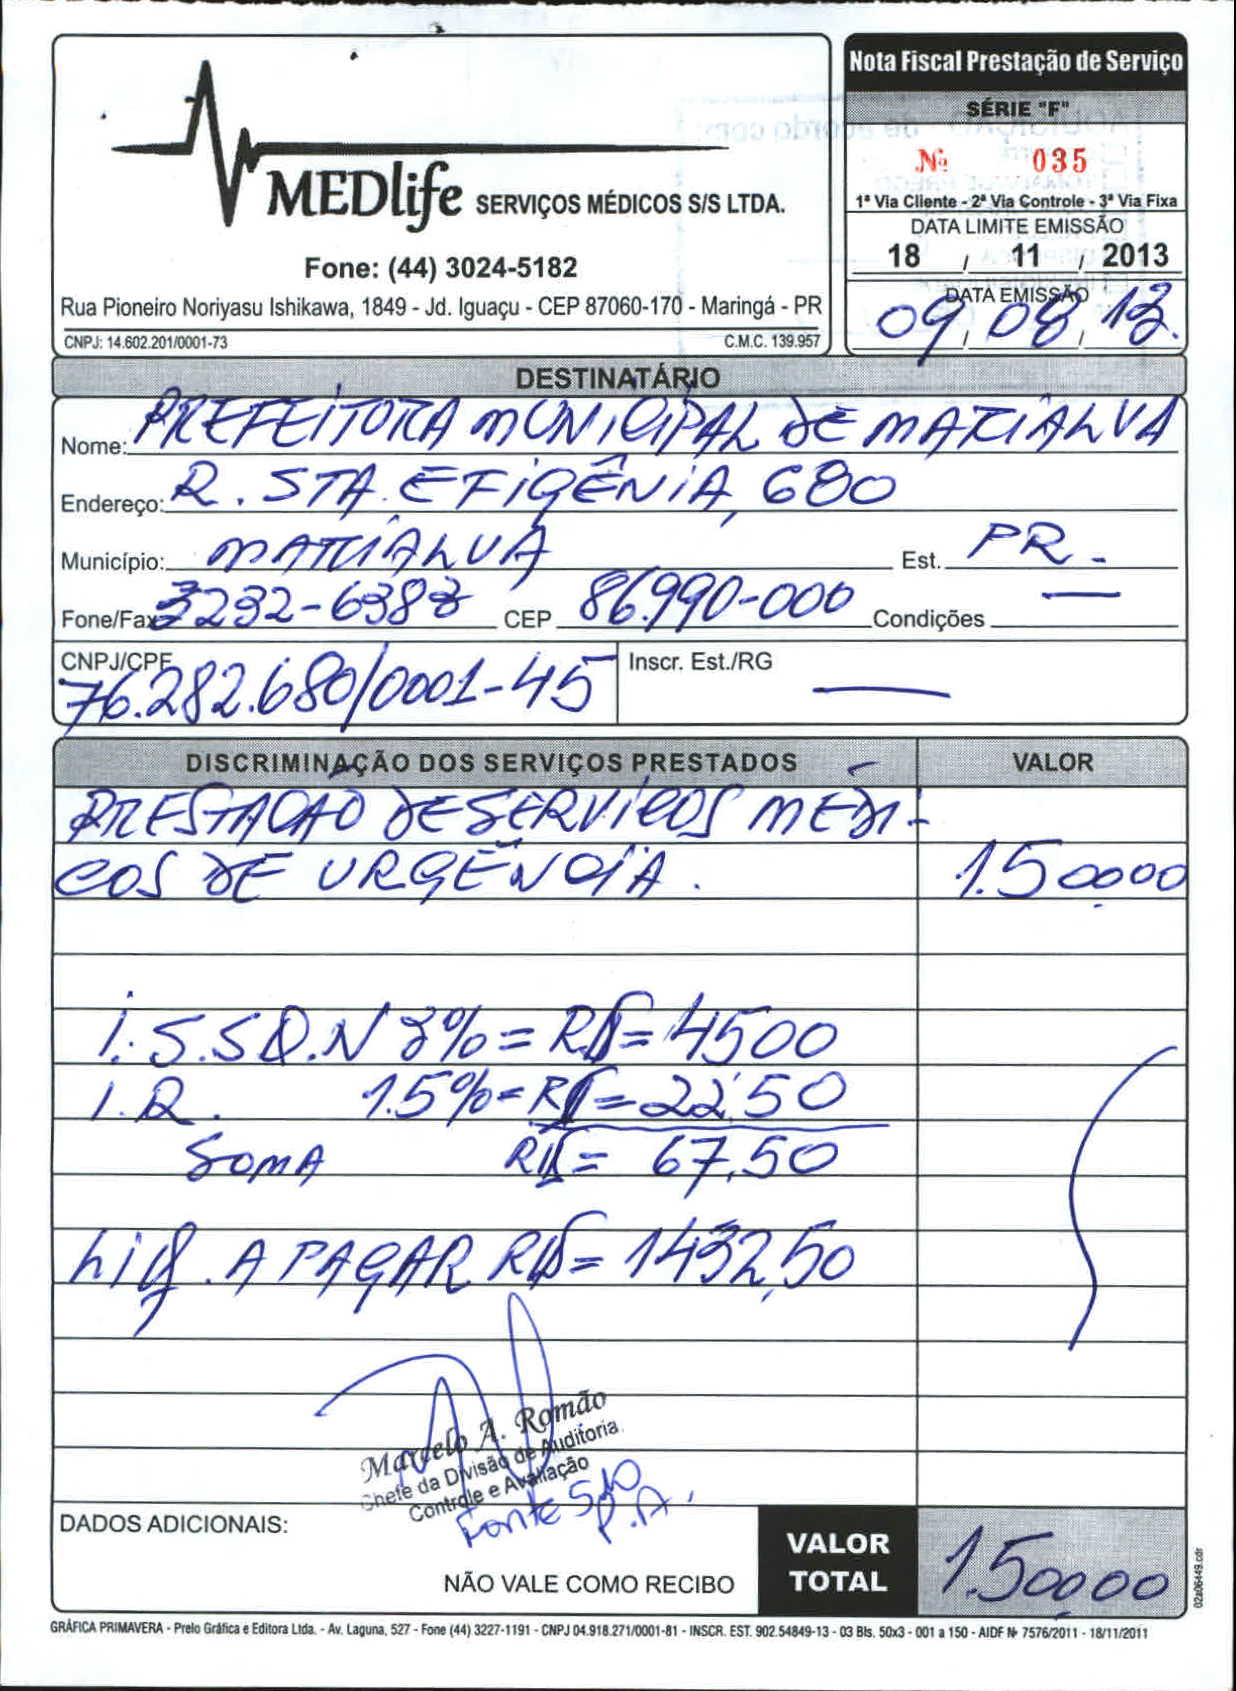 MEDlife SERVIÇOS MÉDICOS S/S LTDA.
Fone: (44) 3024-5182
Rua Pioneiro Noriyasu Ishikawa, 1849 - Jd. Iguaçu - CEP 87060-170 - Maringá - PR
CNPJ: 14.602.201/0001-73 C.M.C. 139.957
Nota Fiscal Prestação de Serviço
SÉRIE "F"
Nº 035
1ª Via Cliente - 2ª Via Controle - 3ª Via Fixa
DATA LIMITE EMISSÃO
18 / 11 / 2013
DATA EMISSÃO
09 / 08 / 13.
DESTINATÁRIO
Nome: PREFEITURA MUNICIPAL DE MARIALVA
Endereço: R. STA. EFIGÊNIA, 680
Município: MARIALVA Est. PR -
Fone/Fax 3232-8383 CEP 86.990-000 Condições —
CNPJ/CPF 76.282.680/0001-45 Inscr. Est./RG —
DISCRIMINAÇÃO DOS SERVIÇOS PRESTADOS VALOR
PRESTAÇÃO DE SERVIÇOS MÉDI-
COS DE URGÊNCIA. 1.500,00
I.S.S.Q.N 3% = R$ = 45,00
I.R. 1.5% = R$ = 22,50
SOMA R$ = 67,50
LIQ. A PAGAR R$ = 1432,50
Marcelo A. Romão
Chefe da Divisão de Auditoria
Controle e Avaliação
Fonte 510
P.A.
DADOS ADICIONAIS:
NÃO VALE COMO RECIBO
VALOR TOTAL 1.500,00
02a06449.cdr
GRÁFICA PRIMAVERA - Prelo Gráfica e Editora Ltda. - Av. Laguna, 527 - Fone (44) 3227-1191 - CNPJ 04.918.271/0001-81 - INSCR. EST. 902.54849-13 - 03 Bls. 50x3 - 001 a 150 - AIDF Nº 7576/2011 - 18/11/2011